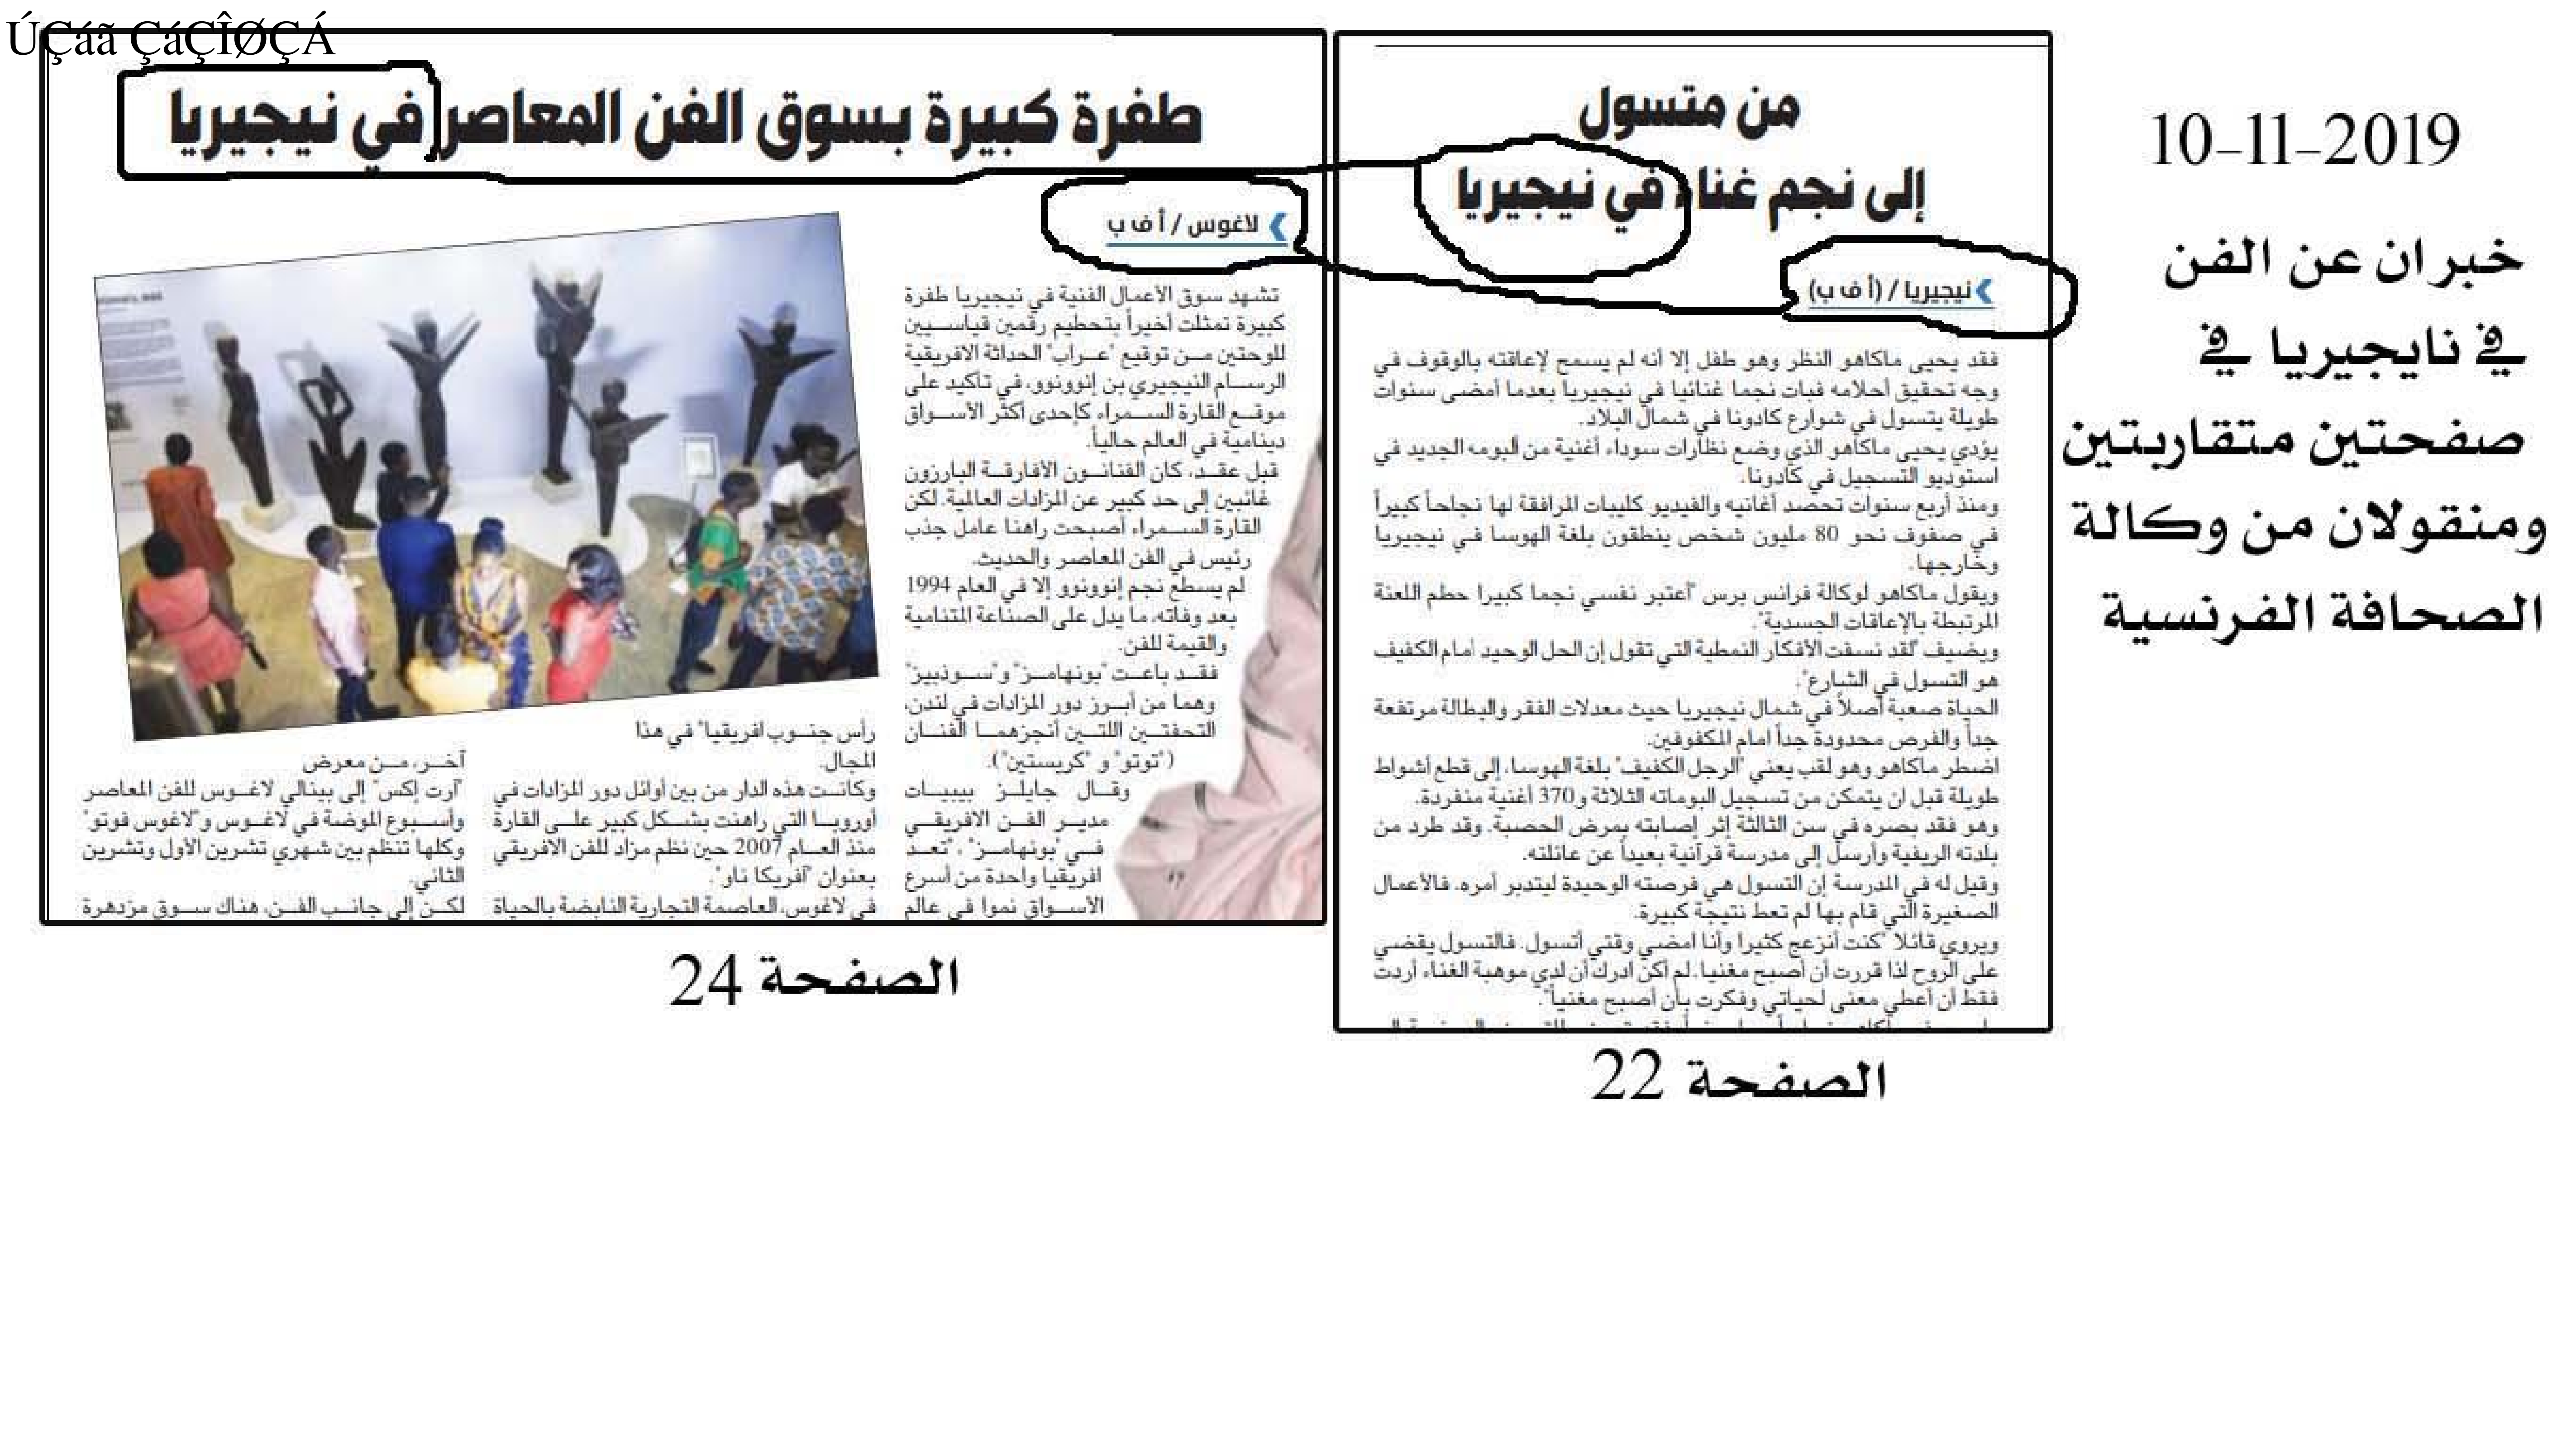 ÚÇáã ÇáÇÎØÇÁ
10-11-2019
خبران عن الفن
في نايجيريا في
صفحتين متقاربتين
ومنقولان من وكالة
الصحافة الفرنسية
من متسول
إلى نجم غناء في نيجيريا
نيجيريا / (أ ف ب)
فقد يحيى ماكاهو النظر وهو طفل إلا أنه لم يسمح لإعاقته بالوقوف في
وجه تحقيق أحلامه فبات نجما غنائيا في نيجيريا بعدما أمضى سنوات
طويلة يتسول في شوارع كادونا في شمال البلاد.
يؤدي يحيى ماكاهو الذي وضع نظارات سوداء أغنية من ألبومه الجديد في
استوديو التسجيل في كادونا.
ومنذ أربع سنوات تحصد أغانيه والفيديو كليبات المرافقة لها نجاحاً كبيراً
في صفوف نحو 80 مليون شخص ينطقون بلغة الهوسا في نيجيريا
وخارجها.
ويقول ماكاهو لوكالة فرانس برس "أعتبر نفسي نجما كبيرا حطم اللعنة
المرتبطة بالإعاقات الجسدية".
ويضيف "لقد نسفت الأفكار النمطية التي تقول إن الحل الوحيد أمام الكفيف
هو التسول في الشارع".
الحياة صعبة أصلاً في شمال نيجيريا حيث معدلات الفقر والبطالة مرتفعة
جداً والفرص محدودة جداً امام المكفوفين.
اضطر ماكاهو وهو لقب يعني "الرجل الكفيف" بلغة الهوسا، إلى قطع أشواط
طويلة قبل ان يتمكن من تسجيل البوماته الثلاثة و370 أغنية منفردة.
وهو فقد بصره في سن الثالثة إثر إصابته بمرض الحصبة. وقد طرد من
بلدته الريفية وأرسل إلى مدرسة قرآنية بعيداً عن عائلته.
وقيل له في المدرسة إن التسول هي فرصته الوحيدة ليتدبر أمره. فالأعمال
الصغيرة التي قام بها لم تعط نتيجة كبيرة.
ويروي قائلا "كنت أنزعج كثيرا وأنا امضي وقتي أتسول. فالتسول يقضي
على الروح لذا قررت أن أصبح مغنيا. لم أكن ادرك أن لدي موهبة الغناء أردت
فقط أن أعطي معنى لحياتي وفكرت بأن أصبح مغنياً".
الصفحة 22
طفرة كبيرة بسوق الفن المعاصر في نيجيريا
لاغوس / أ ف ب
تشهد سوق الأعمال الفنية في نيجيريا طفرة
كبيرة تمثلت أخيراً بتحطيم رقمين قياسيين
للوحتين من توقيع "عراب" الحداثة الافريقية
الرسام النيجيري بن إنوونوو، في تأكيد على
موقع القارة السمراء كإحدى أكثر الأسواق
دينامية في العالم حالياً.
قبل عقد، كان الفنانون الأفارقة البارزون
غائبين إلى حد كبير عن المزادات العالمية. لكن
القارة السمراء أصبحت راهنا عامل جذب
رئيس في الفن المعاصر والحديث.
لم يسطع نجم إنوونوو إلا في العام 1994
بعد وفاته، ما يدل على الصناعة المتنامية
والقيمة للفن.
فقد باعت "بونهامز" و"سوذبيز"
وهما من أبرز دور المزادات في لندن،
التحفتين اللتين أنجزهما الفنان
("توتو" و "كريستين").
وقال جايلز بيبيات
مدير الفن الافريقي
في "بونهامز"، "تعد
افريقيا واحدة من أسرع
الأسواق نموا في عالم
رأس جنوب افريقيا" في هذا
المجال.
وكانت هذه الدار من بين أوائل دور المزادات في
أوروبا التي راهنت بشكل كبير على القارة
منذ العام 2007 حين نظم مزاد للفن الافريقي
بعنوان "أفريكا ناو".
في لاغوس، العاصمة التجارية النابضة بالحياة
آخر، من معرض
"آرت إكس" إلى بينالي لاغوس للفن المعاصر
وأسبوع الموضة في لاغوس و"لاغوس فوتو"
وكلها تنظم بين شهري تشرين الأول وتشرين
الثاني.
لكن إلى جانب الفن، هناك سوق مزدهرة
الصفحة 24